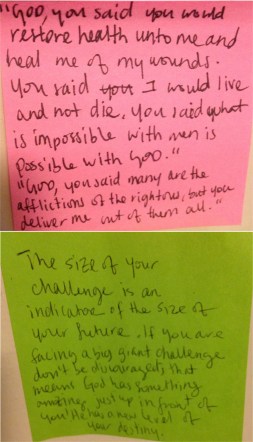 "God, you said you would
restore health unto me and
heal me of my wounds.
You said you I would live
and not die. You said what
is impossible with men is
possible with God."
"God, you said many are the
afflictions of the righteous, but you
deliver me out of them all."
The size of your
challenge is an
indicator of the size of
your future. If you are
facing a big giant challenge
don't be discouraged that
means God has something
amazing just up in front of
you! He has a new level of
your destiny.